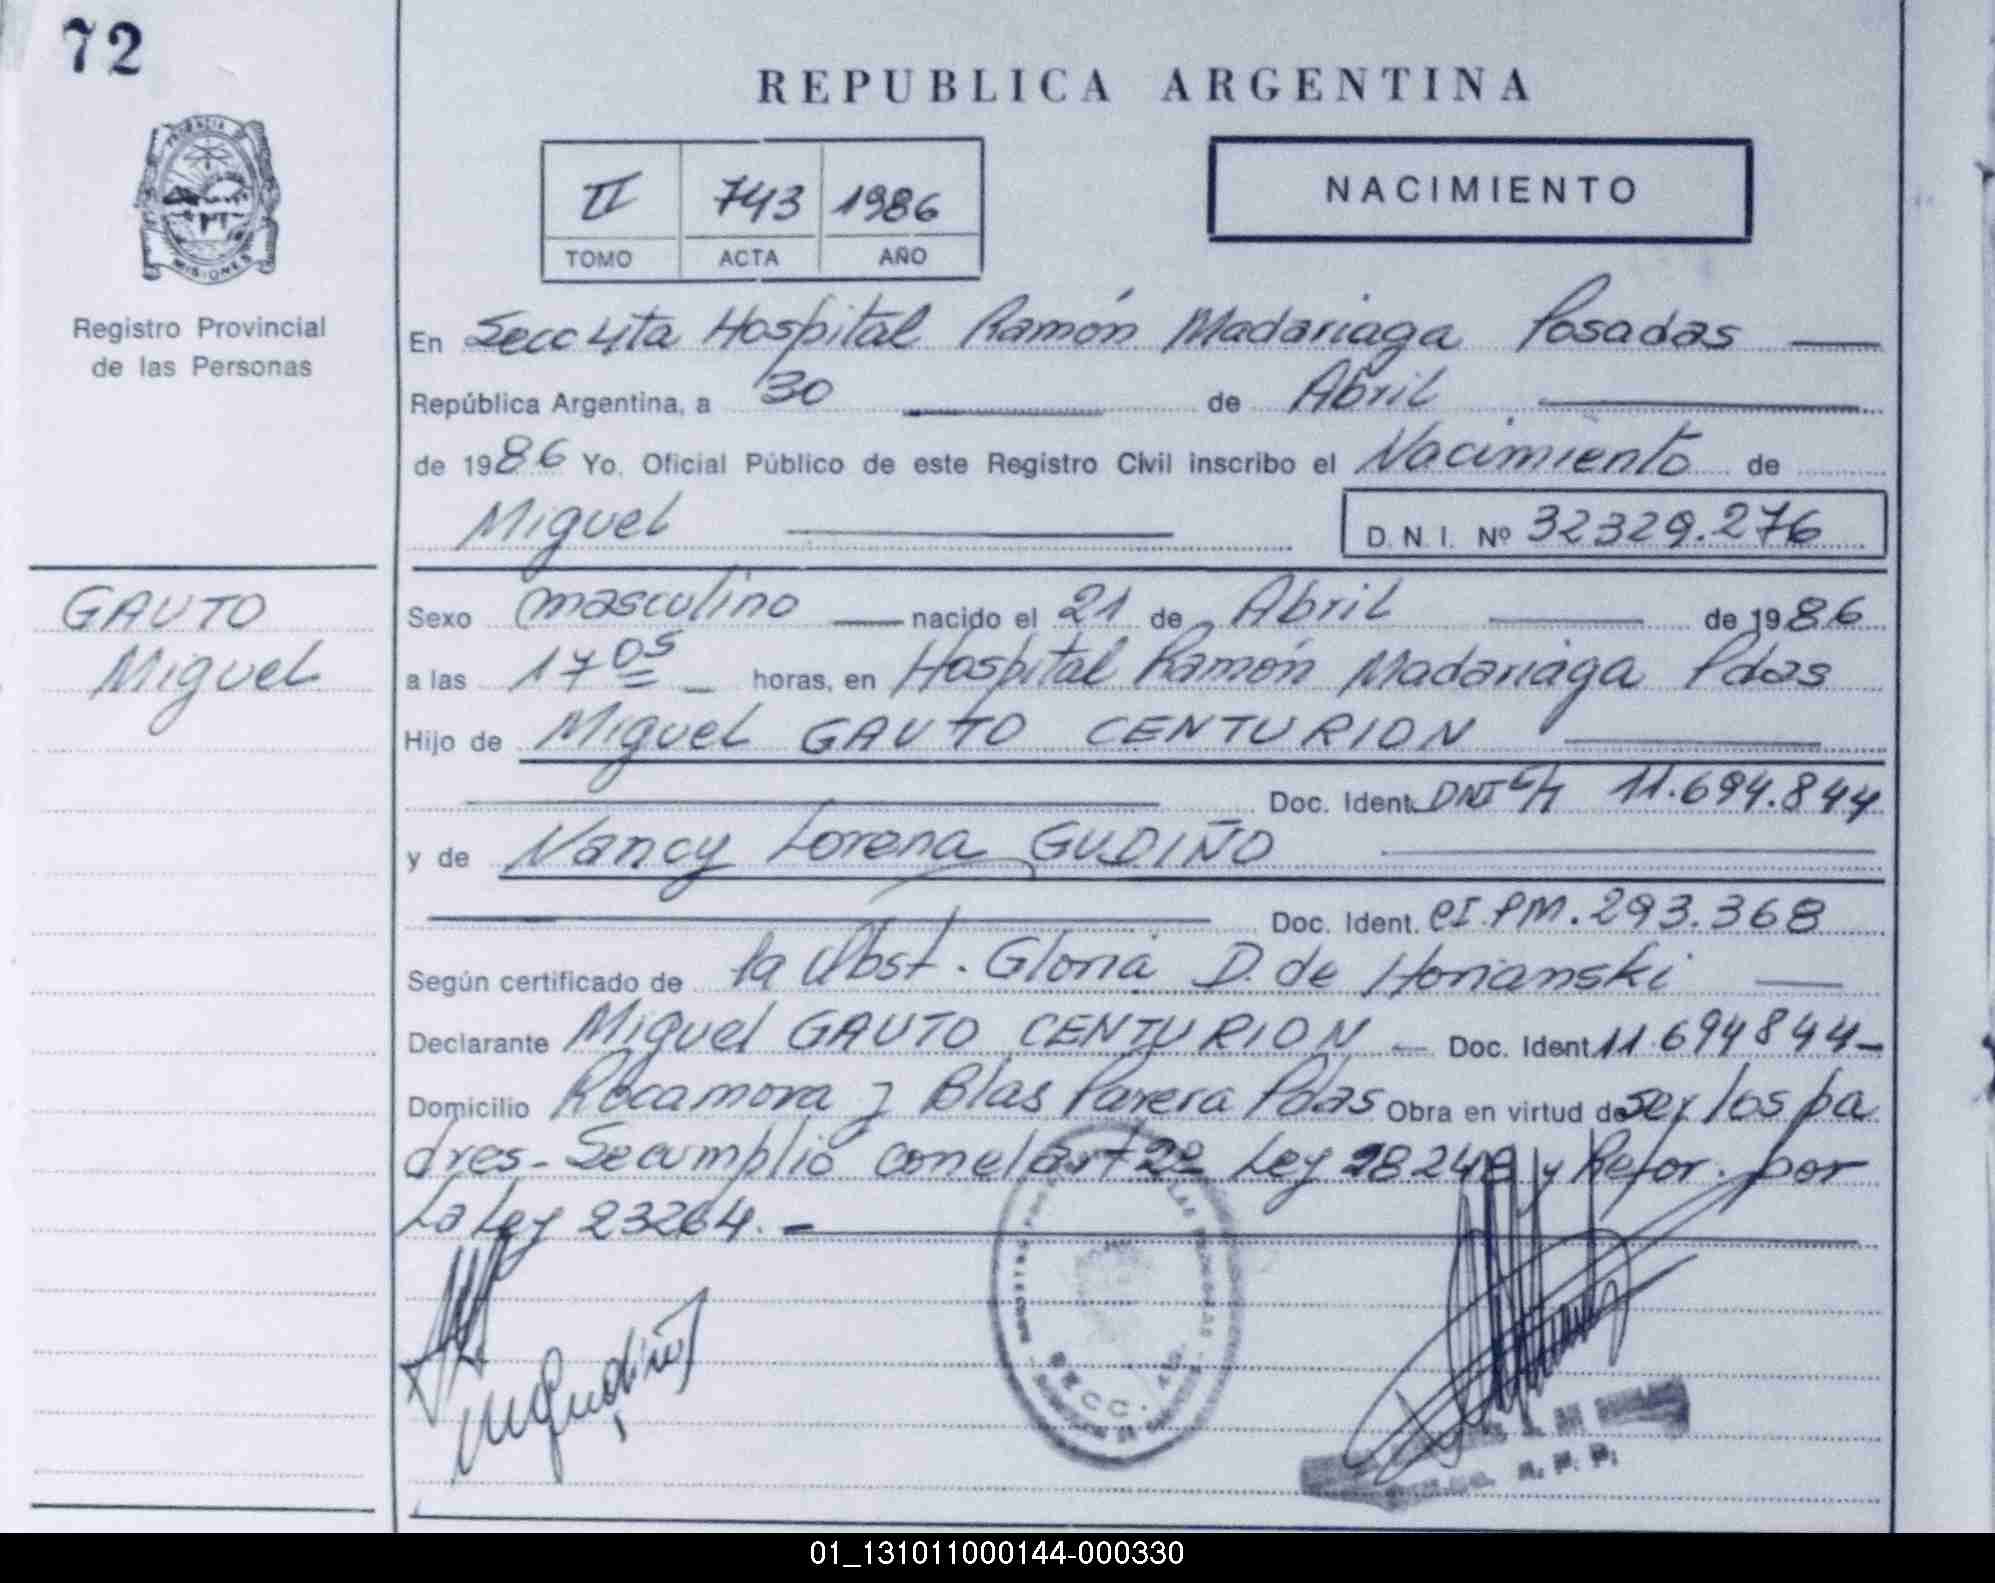 72
REPUBLICA ARGENTINA
II 743 1986
TOMO ACTA AÑO
NACIMIENTO
MISIONES
Registro Provincial
de las Personas
En Secc 4ta Hospital Ramón Madariaga Posadas
República Argentina, a 30 de Abril
de 1986 Yo, Oficial Público de este Registro Civil inscribo el Nacimiento de
Miguel D. N. I. Nº 32329.276
GAUTO
Miguel
Sexo masculino nacido el 21 de Abril de 1986
a las 17 05 horas, en Hospital Ramón Madariaga Pdas
Hijo de Miguel GAUTO CENTURION
Doc. Ident. DNI 11.694.844
y de Nancy Lorena GUDIÑO
Doc. Ident. CI.PM.293.368
Según certificado de la Obst. Gloria D. de Horianski
Declarante Miguel GAUTO CENTURION Doc. Ident. 11.694844
Domicilio Rocamora y Blas Parera Pdas Obra en virtud de ser los pa
dres - Se cumplió con el art 2º Ley 18.248 y Refor. por
La Ley 23264.
SECC.
01_131011000144-000330